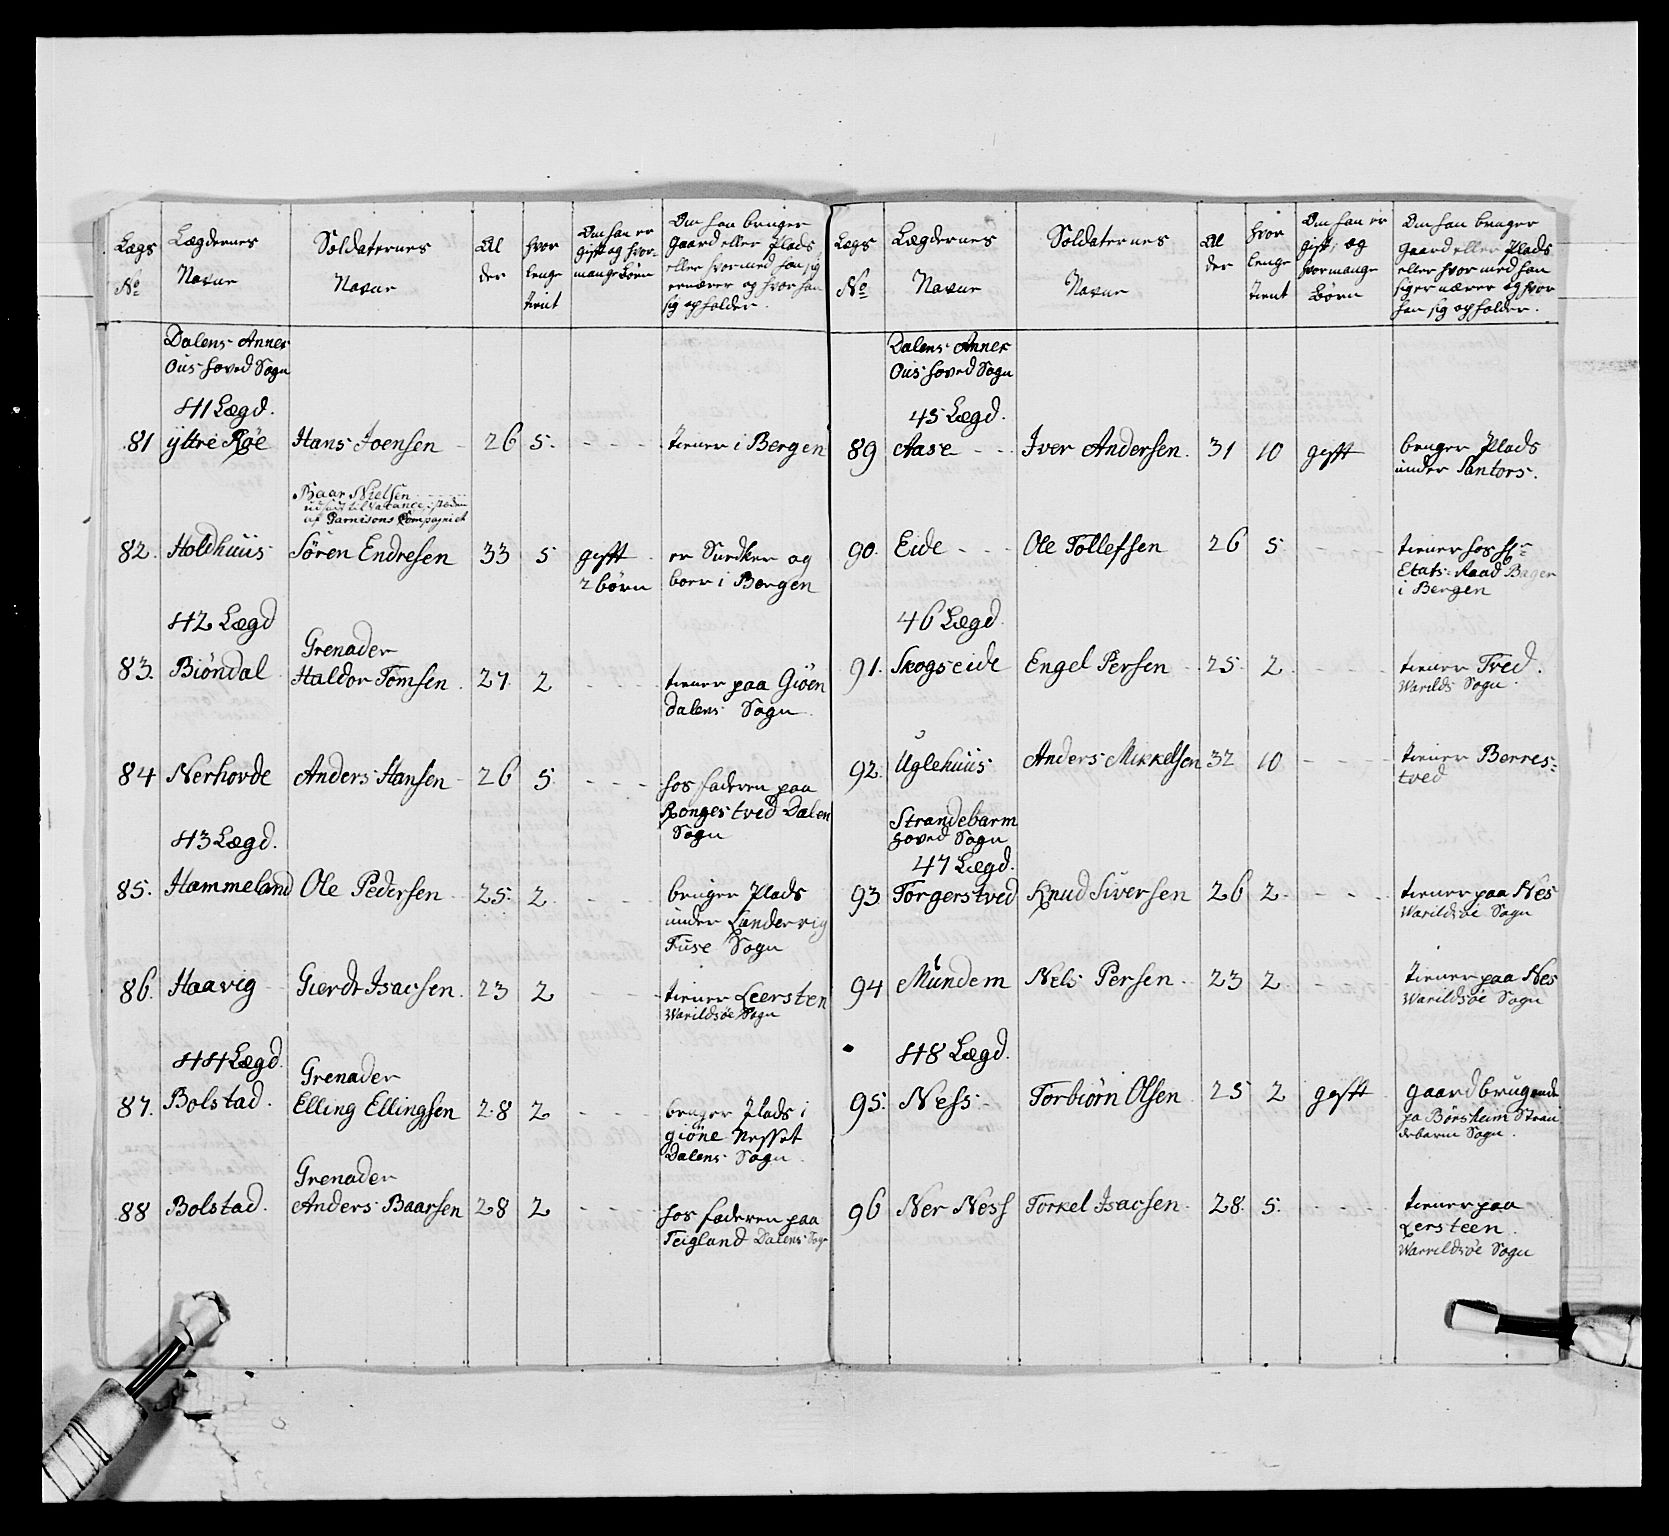 Lægs No | Lægdernes Navne | Soldaternes Navne | Al der | hvor lenge tient | Om han er gift og hvor mange Börn | Om han bruger gaard eller Plads eller hvormed han sig ernærer og hvor han sig opholder.
Dalens Annex
Ous hoved Sogn
41 Lægd.
81 | ÿttre Røe | Hans Joensen | 26 | 5. | - - - | tiener i Bergen
Baar Nielsen
udsat til Vacance, isteden
af Garnisons Compagniet
82. | Holdhuus | Sören Endresen | 33 | 5 | gifft 2 börn | er Snedker og boer i Bergen
42 Lægd
Grenader
83. | Biöndal | Haldor Tomsen | 27. | 2 | - - - | tiener paa Giöen Dalens Sogn
84 | Nerhovde | Anders Hansen | 26 | 5 | - - - | hos faderen paa Rongestved Dalen Sogn
43 Lægd.
85. | Hammeland | Ole Pedersen | 25. | 2 | - - - | bruger Plads under Landervig Fuse Sogn
86. | Haavig | Gierdt Isacsen | 23 | 2 | - - - | tiener Leersten Warildsöe Sogn
44 Lægd.
Grenader
87. | Bolstad. | Elling Ellingsen | 28 | 2 | - - - | bruger Plads i giöne Nesset Dalens Sogn
Grenader
88 | Bolstad. | Anders Baarsen | 28 | 2 | - - - | hos faderen paa Teigland Dalens Sogn
Lægs No | Lægdernes Navne | Soldaternes Navne | Al der | hvor lenge tient | Om han er gift og hvor mange Börn | Om han bruger gaard eller Plads eller hvormed han sig ernærer og hvor han sig opholder.
Dalens Annex
Ous hoved Sogn
45 Lægd.
89 | Aase | Iver Andersen | 31 | 10 | gifft | bruger Plads under Santors.
90. | Eide | Ole Tollefsen | 26 | 5 | - - | tiener hos Hr Etats-Raad Bager i Bergen
46 Lægd
91. | Skogseide | Engel Persen | 25 | 2 | - - - | tiener Tved. Warilds Sogn.
92 | Uglehuus | Anders Mikkelsen | 32 | 10 | - - - | tiener Berres= tved
Strandebarm
hoved Sogn
47 Lægd.
93 | Torgerstved | Knud Siversen | 26 | 2 | - - - | tiener paa Nes Warildsöe Sogn
94 | Mundem | Nels Persen | 23 | 2 | - - | tiener paa Nes Warildsöe Sogn
48 Lægd.
95. | Ness | Torbiörn Olsen | 25 | 2 | gifft | gaardbrugende pa Börsheim Stran debarm Sogn.
96 | Ner Ness | Torkel Isacsen | 28. | 5. | - - - | tiener paa Lersteen. Warrildsöe Sogn